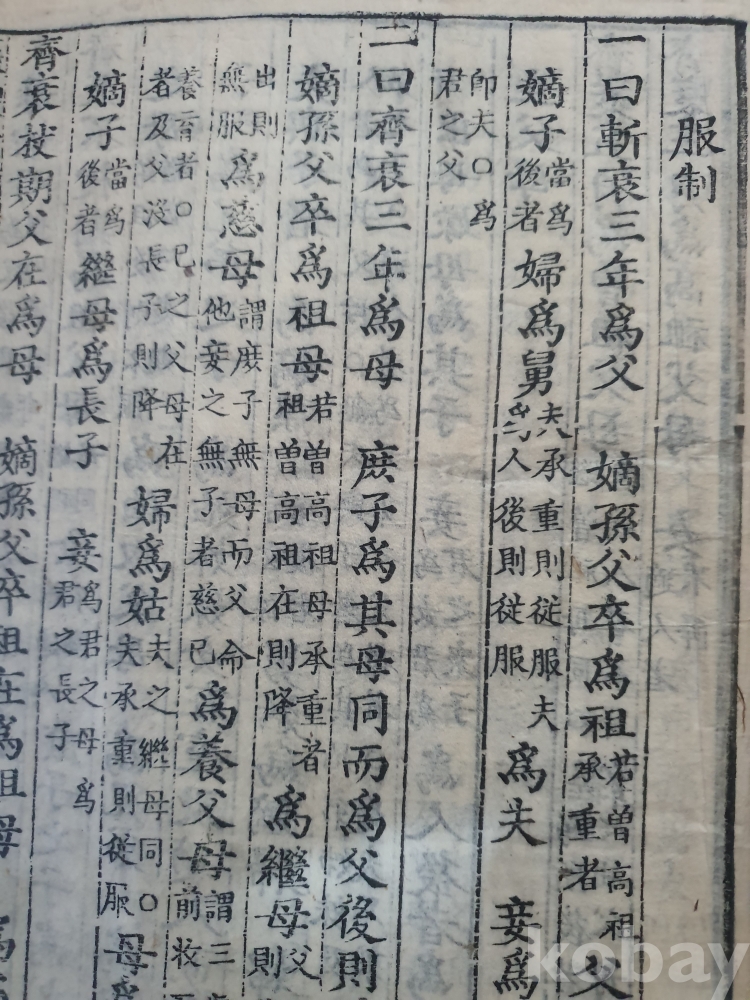 服制
一曰斬衰三年爲父 嫡孫父卒爲祖若曾高祖承重者父
嫡子當爲後者婦爲舅夫承重則從服夫爲人後則從服 爲夫 妾爲
卽夫○爲君之父
二曰齊衰三年爲母 庶子爲其母同而爲父後則
嫡孫父卒爲祖母若曾高祖母承重者祖曾高祖在則降 爲繼母父
出則無服爲慈母謂庶子無母而父命他妾之無子者慈己 爲養父母謂三
養育者○己之父母在者及父沒長子則降 婦爲姑夫之繼母同○夫承重則從服 母爲
嫡子當爲後者繼母爲長子 妾爲君之母爲君之長子
齊衰杖期父在爲母 嫡孫父卒祖在爲祖母 爲
kobay